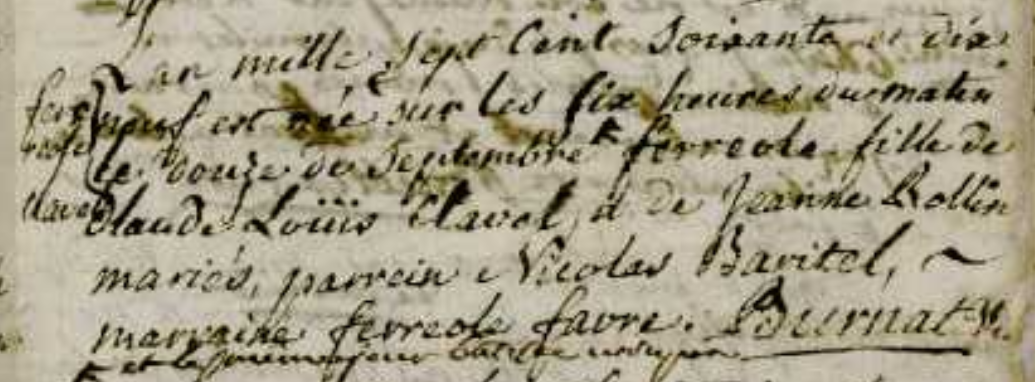 L'an mille sept Cent Soixante et dix
neuf est née sur les six heures du matin
le douze de Septembre ferreole fille de
Claude Loüis Clavel, et de Jeanne Rollin
mariés, parrein Nicolas Baritel,
marraine ferreole favre. Burnat
et le même jour